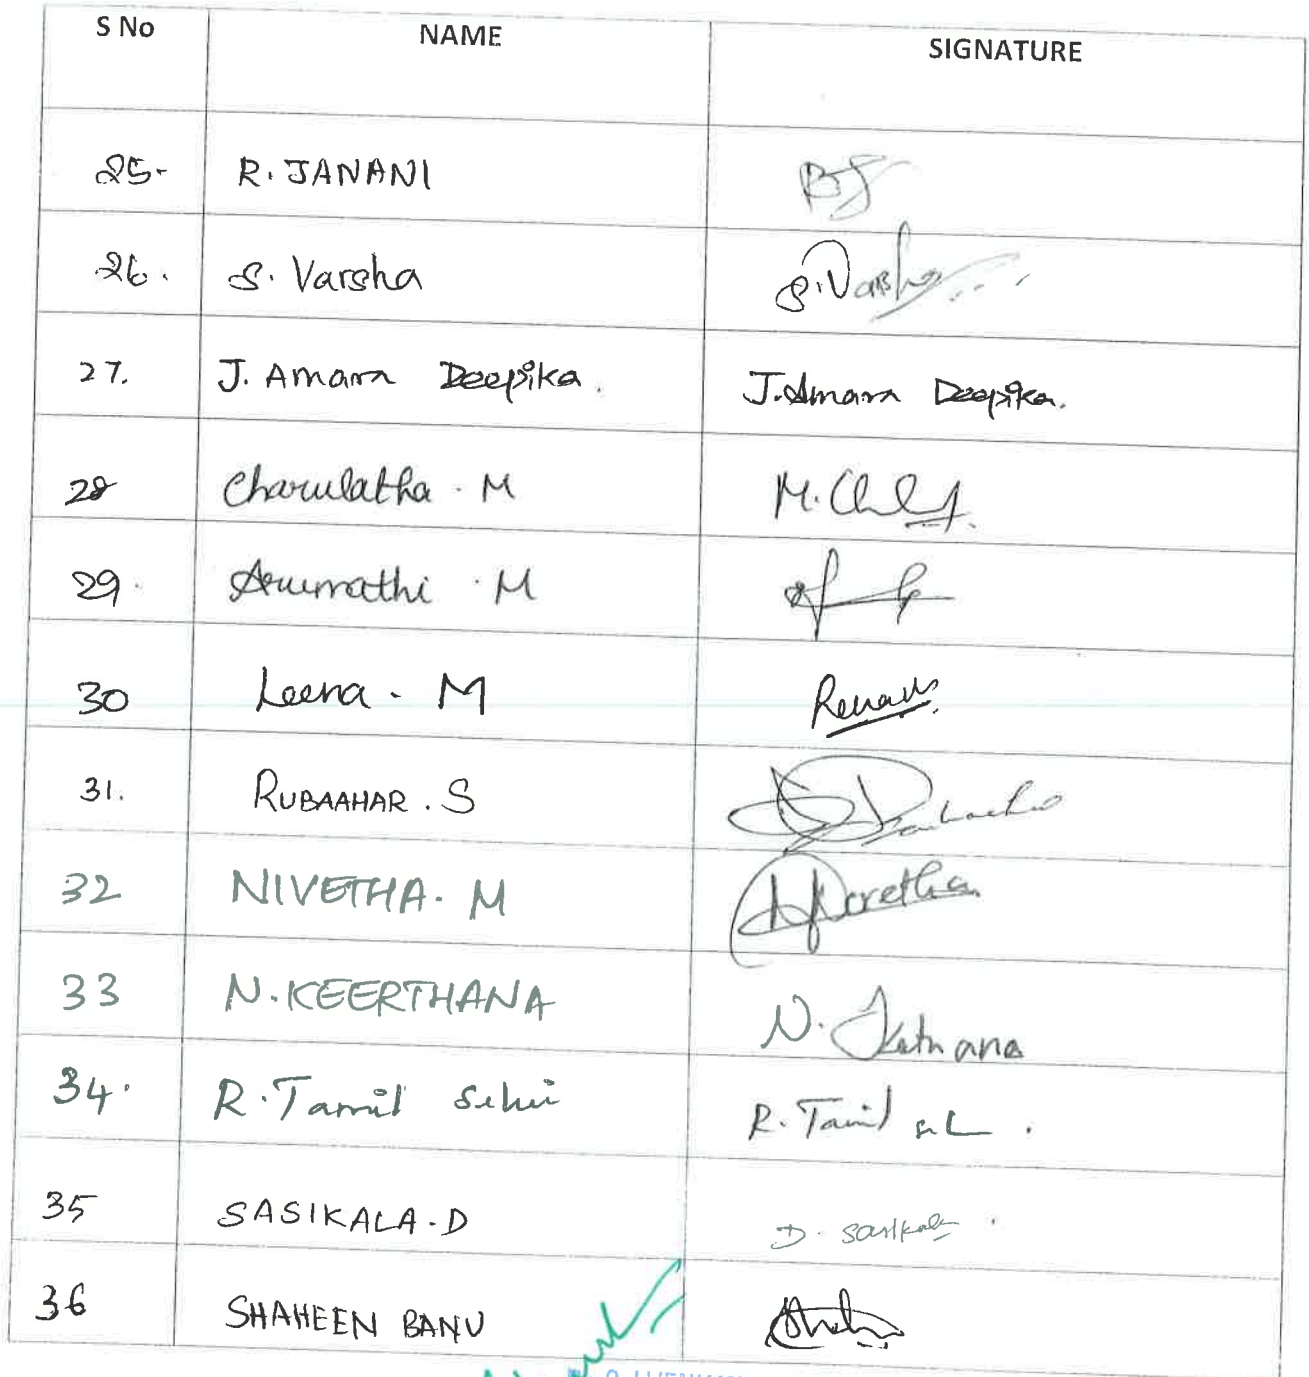 S No NAME SIGNATURE
25. R. JANANI
26. S. Varsha S. Varsha
27. J. Amara Deepika. J. Amara Deepika.
28 Charulatha . M
29. Arumathi . M
30 Leena . M
31. RUBAAHAR . S
32 NIVETHA . M Nivetha
33 N. KEERTHANA N.
34. R. Tamil Selvi R. Tamil
35 SASIKALA . D D. Sasikala
36 SHAHEEN BANU